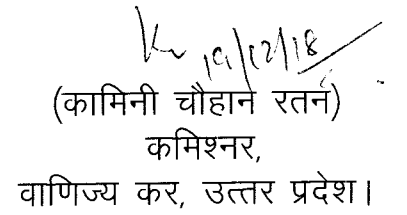 19/12/18
(कामिनी चौहान रतन)
कमिश्नर,
वाणिज्य कर, उत्तर प्रदेश।